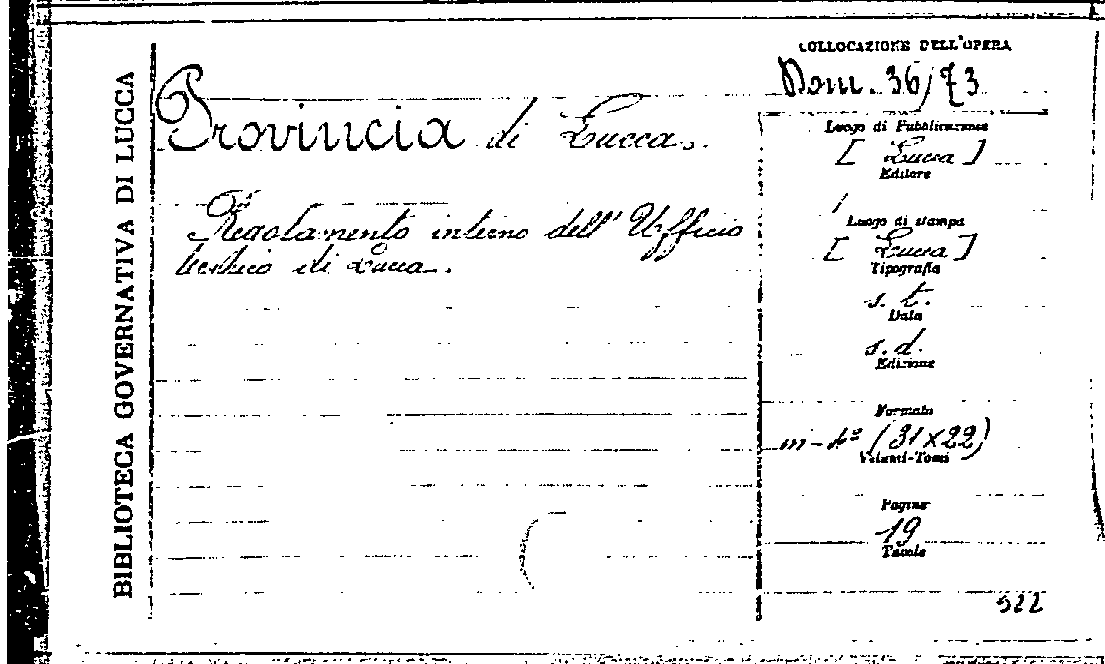 BIBLIOTECA GOVERNATIVA DI LUCCA
Provincia di Lucca.
Regolamento interno dell' Ufficio
di Lucca.
COLLOCAZIONE DELL'OPERA
Dom. 36/73
Luogo di Pubblicazione
[Lucca]
Editore
Luogo di stampa
[Lucca]
Tipografia
s. t.
Data
s. d.
Edizione
Formato
in-4º (31x22)
Volumi-Tomi
Pagine
19
Tavole
522